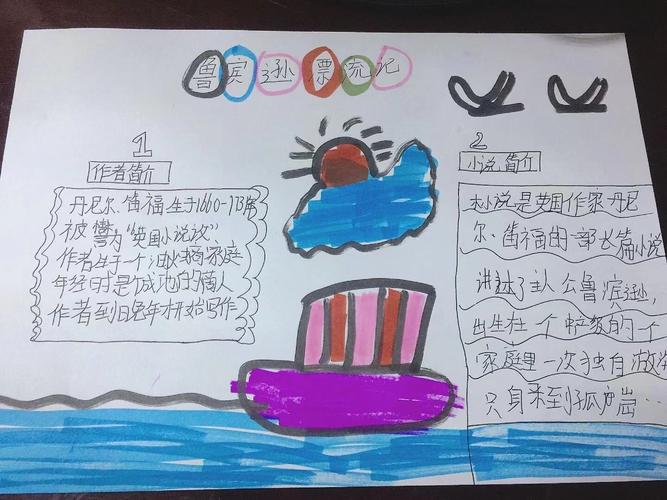 鲁宾逊漂流记
1
作者简介
丹尼尔、笛福生于1660-1731年
被誉为"英国小说
作者生于一个 家庭
年 时是个成 的商人
作者到日 晚年才开始写作
2
小说简介
小说是英国作家丹尼
尔、笛福的一部长篇小说
讲述了主人公鲁滨逊,
出生在一个 的一个
家庭里一次独自
只身来到孤 岩…